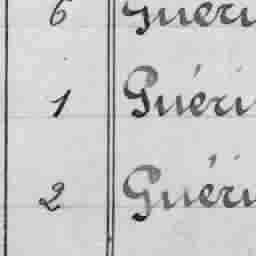 6 Guéri
1 Guéri
2 Guéri